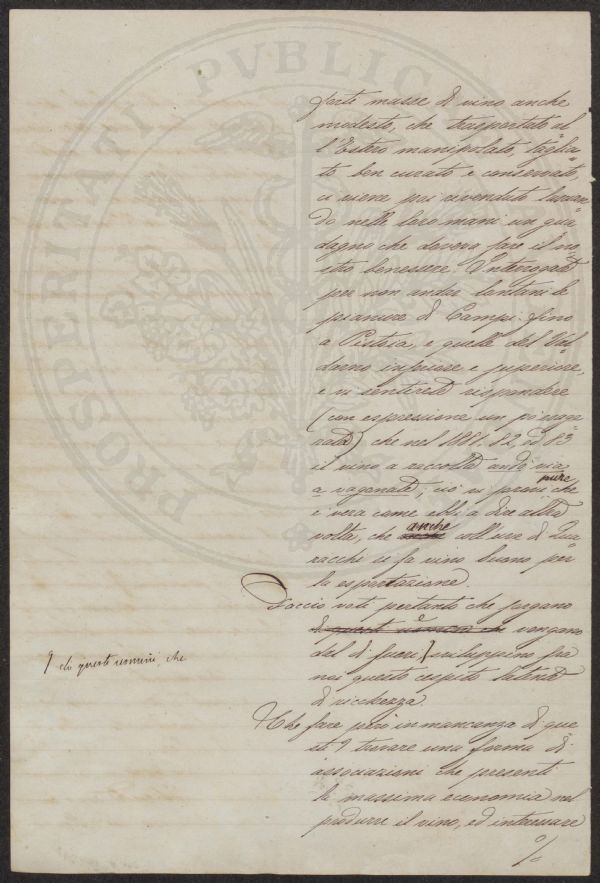 PROSPERITATI PVBLIC
forte masse di vino anche
modesto, che trasportato al
l'Estero manipolato, taglia
to ben curato e conservato,
ci viene poi rivenduto lascian
do nelle loro mani un gua
dagno che doveva fare il no
stro benessere. Interogate
per non andar lontani le
pianure di Campi fino
a Pistoia, e quelle del Val
darno inferiore e superiore,
e vi sentirete rispondere
(con espressione un po' esage
rata) che nel 1881. 82 ed 83
il vino a raccolta andò via
a vagonate; ciò vi provi pure che
è vera come ebbi a dire altra
volta, che anche coll'uva di Qua
racchi si fa vino buono per
la esportazione.
Faccio voti pertanto che sorgano
di questi uomini che o vengano
del di fuori, sviluppino fra
noi questo cespite latente
di ricchezza.
di questi uomini, che
Che fare però in mancanza di que
sti? trovare una forma di
associazioni che presenti
la massima economia nel
produrre il vino, ed interessare
%